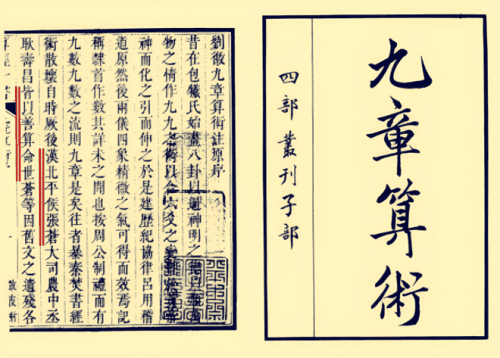 九章算術
四部叢刊子部
劉徽九章算術註原序
昔在包犧氏始畫八卦以通神明之德以類
物之情作九九之術以合六爻之變
神而化之引而伸之於是建歷紀協律呂用稽
道原然後兩儀四象精微之氣可得而效焉記
稱隸首作數其詳未之聞也按周公制禮而有
九數九數之流則九章是矣往者暴秦焚書經
術散壞自時厥後漢北平侯張蒼大司農中丞
耿壽昌皆以善算命世蒼等因舊文之遺殘各